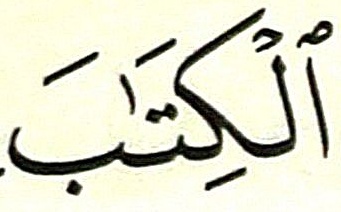 ٱلْكِتَٰبَ